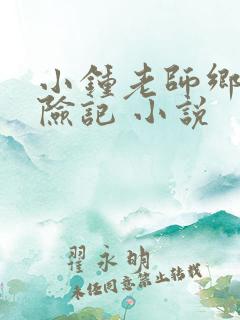 小鍾老師鄉
險記 小説
翟永明
未经同意禁止转载